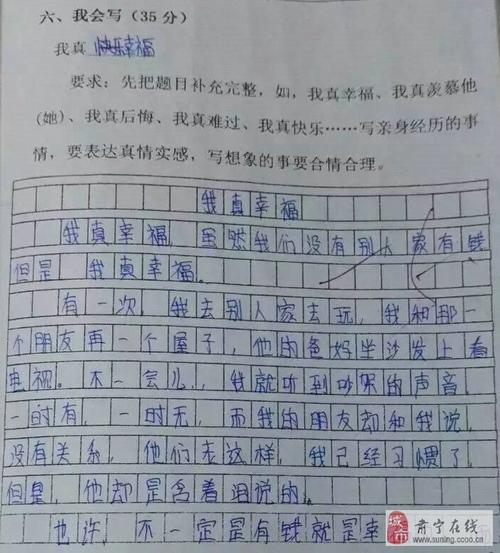 六、我会写(35分)
我真快乐幸福
要求：先把题目补充完整，如，我真幸福、我真羡慕他
(她)、我真后悔、我真难过、我真快乐……写亲身经历的事
情，要表达真情实感，写想象的事要合情合理。
我真幸福
我真幸福，虽然我们没有别人家有钱
但是，我真幸福。
有一次，我去别人家去玩，我和那一
个朋友再一个屋子，他的爸妈坐沙发上看
电视。不一会儿，我就听到吵架的声音，
一时有，一时无，而我的朋友却和我说，
没有关系，他们老这样，我已经习惯了，
但是，他却是含着泪说的。
也许，不一定是有钱就是幸
城市
肃宁在线
www.suning.cccoo.cn